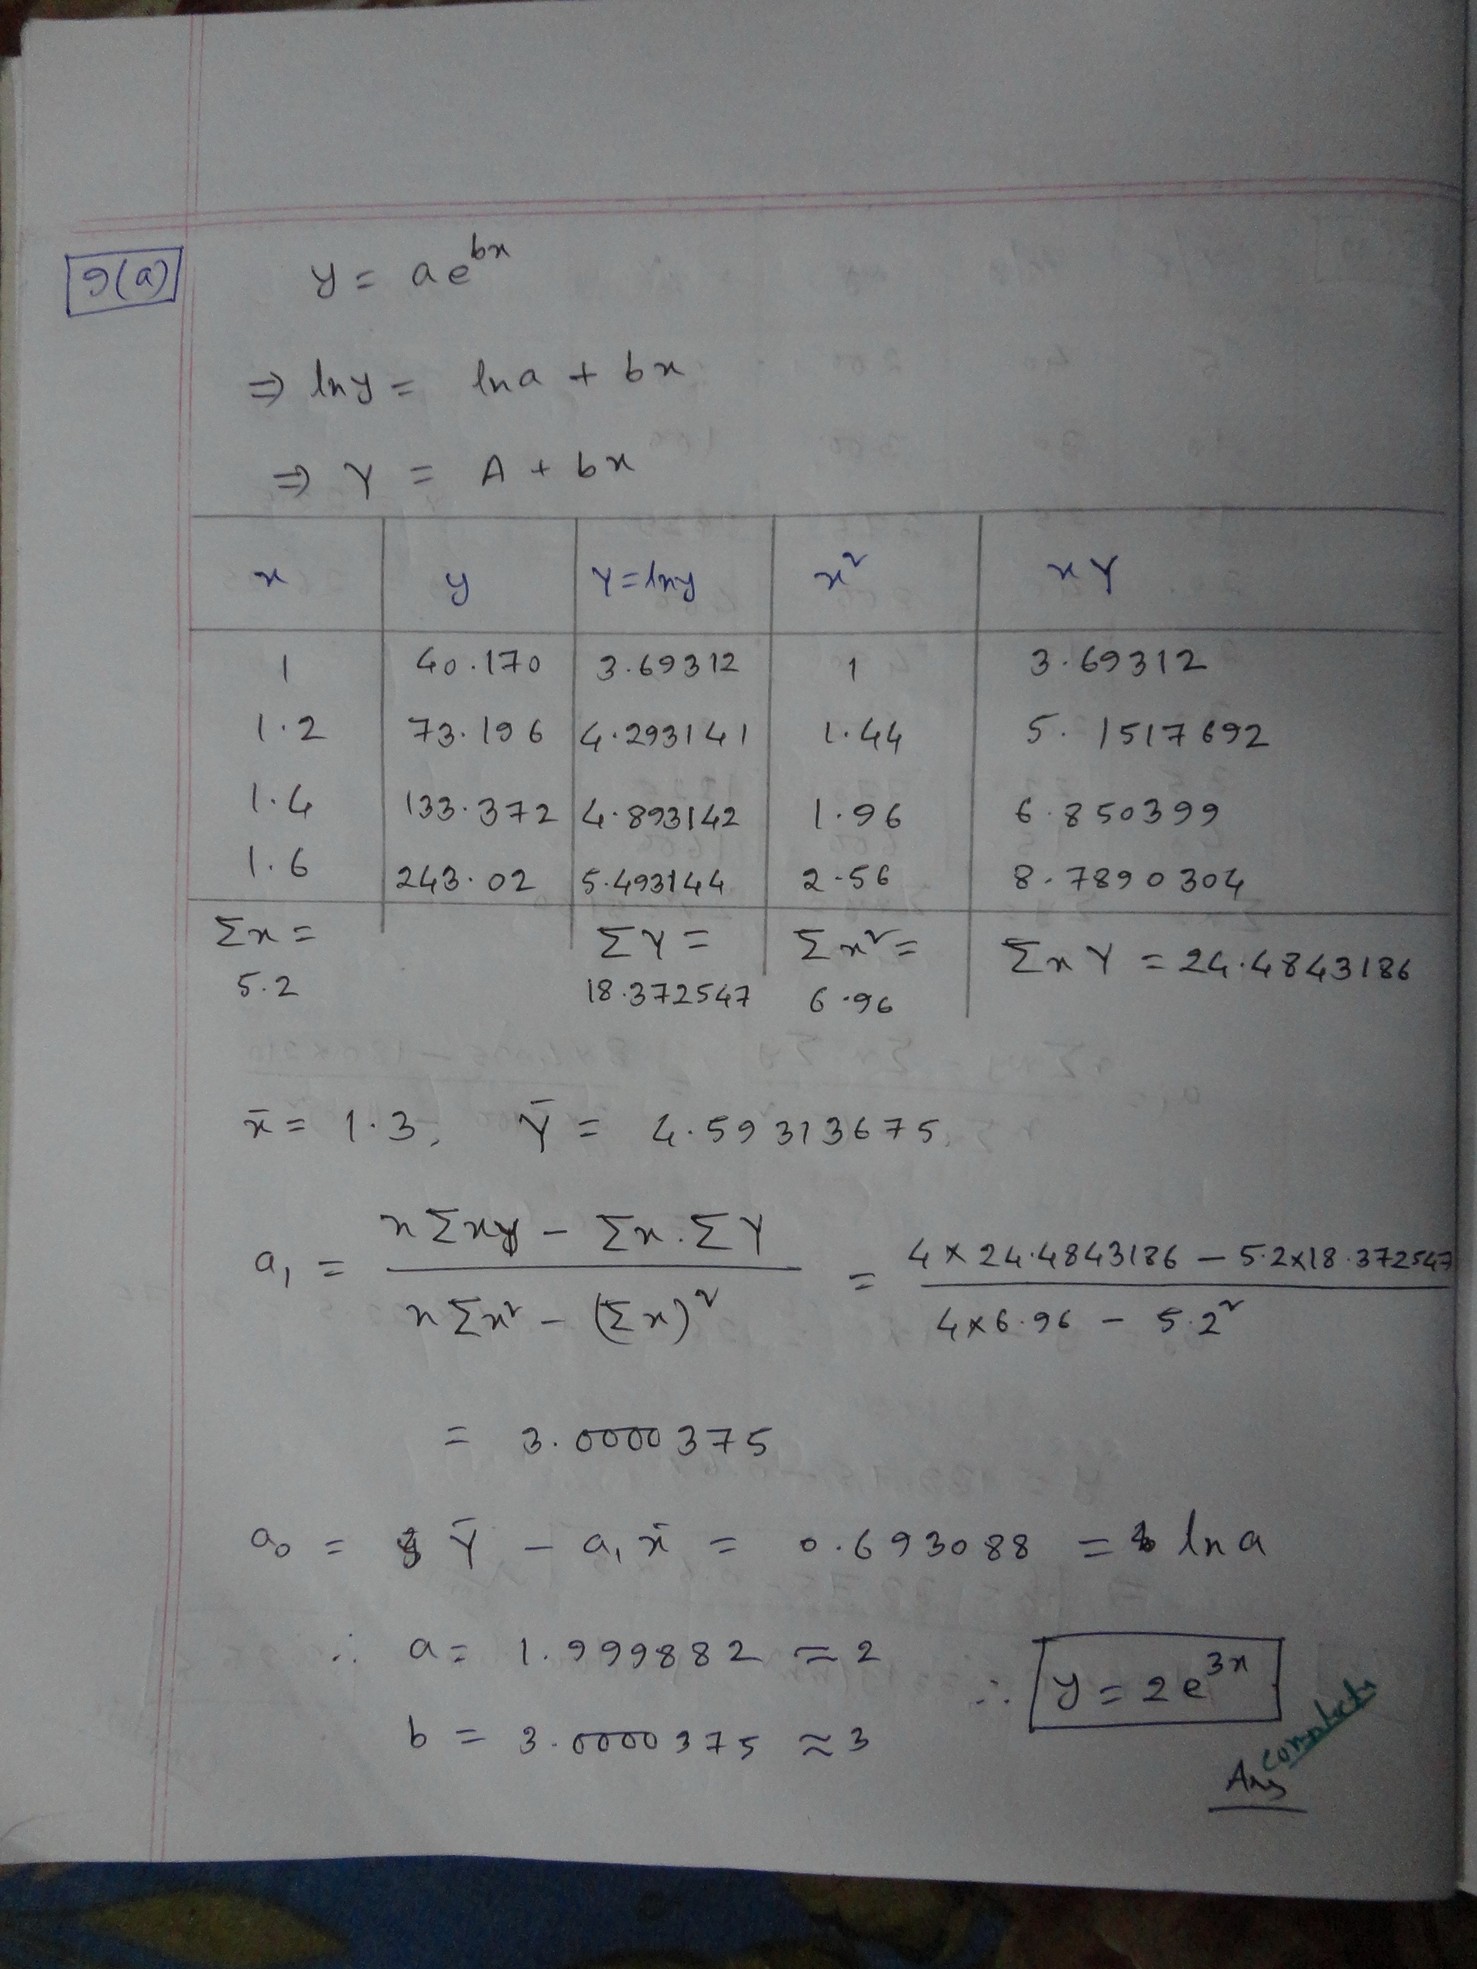 9(a)
y = ae^{bx}
⇒ ln y = ln a + bx
⇒ Y = A + bx
x y Y = ln y x² xY
1 40.170 3.69312 1 3.69312
1.2 73.196 4.293141 1.44 5.1517692
1.4 133.372 4.893142 1.96 6.850399
1.6 243.02 5.493144 2.56 8.7890304
Σx = 5.2 ΣY = 18.372547 Σx² = 6.96 ΣxY = 24.4843186
x̄ = 1.3, Ȳ = 4.59313675
a₁ = (nΣxy − Σx.ΣY) / (nΣx² − (Σx)²) = (4×24.4843186 − 5.2×18.372547) / (4×6.96 − 5.2²)
= 3.0000375
a₀ = Ȳ − a₁x̄ = 0.693088 = ln a
∴ a = 1.999882 ≈ 2
∴ y = 2e^{3x}
b = 3.0000375 ≈ 3
Ans